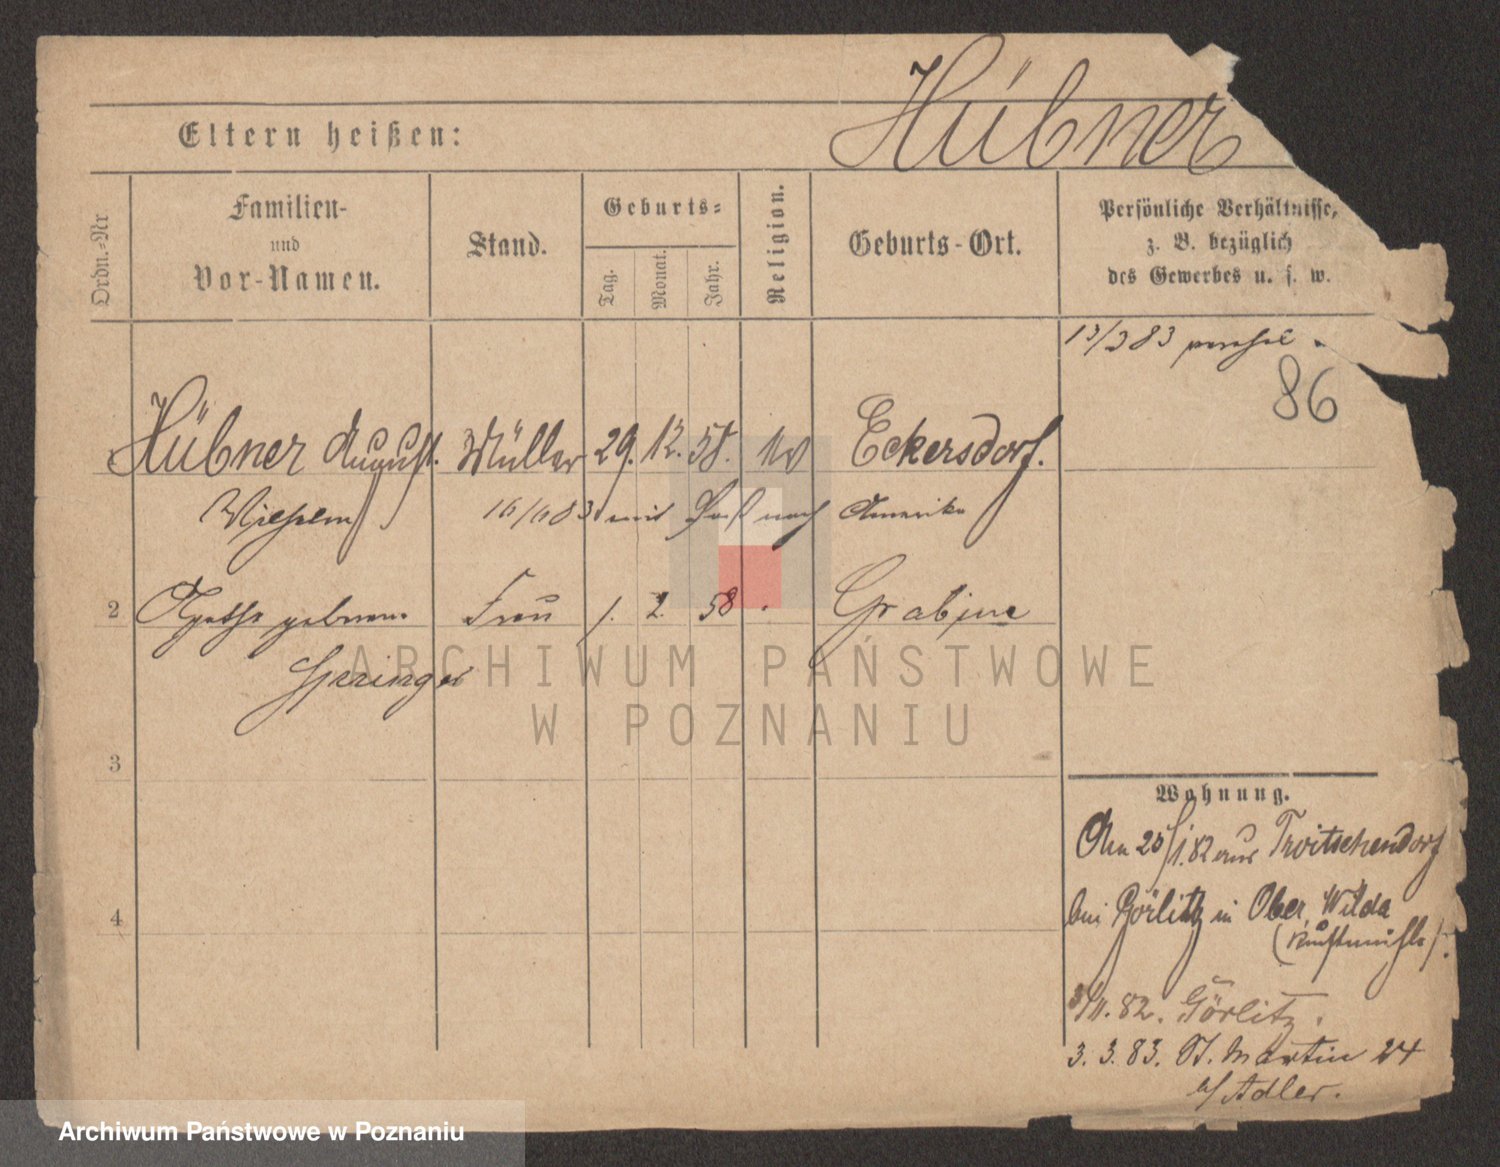 Hübner
Eltern heißen:
Ordn.-Nr
Familien-
und
Vor-Namen.
Stand.
Geburts-
Tag.
Monat.
Jahr.
Religion.
Geburts-Ort.
Persönliche Verhältnisse,
z. B. bezüglich
des Gewerbes u. s. w.
13/3 83
86
Hübner August Müller 29. 12. 58. Eckersdorf.
Wilhelm 16/6 83 mit Paß nach Amerika
2 Agathe geborene Frau 1. 2 58 Grabine
Springer
ARCHIWUM PAŃSTWOWE
W POZNANIU
3
4
Wohnung.
Am 20/1. 82 aus Troitschendorf
bei Görlitz in Ober Wilda
(Kunstmühle).
82. Görlitz.
3. 3. 83. St. Martin 24
b/ Adler.
Archiwum Państwowe w Poznaniu